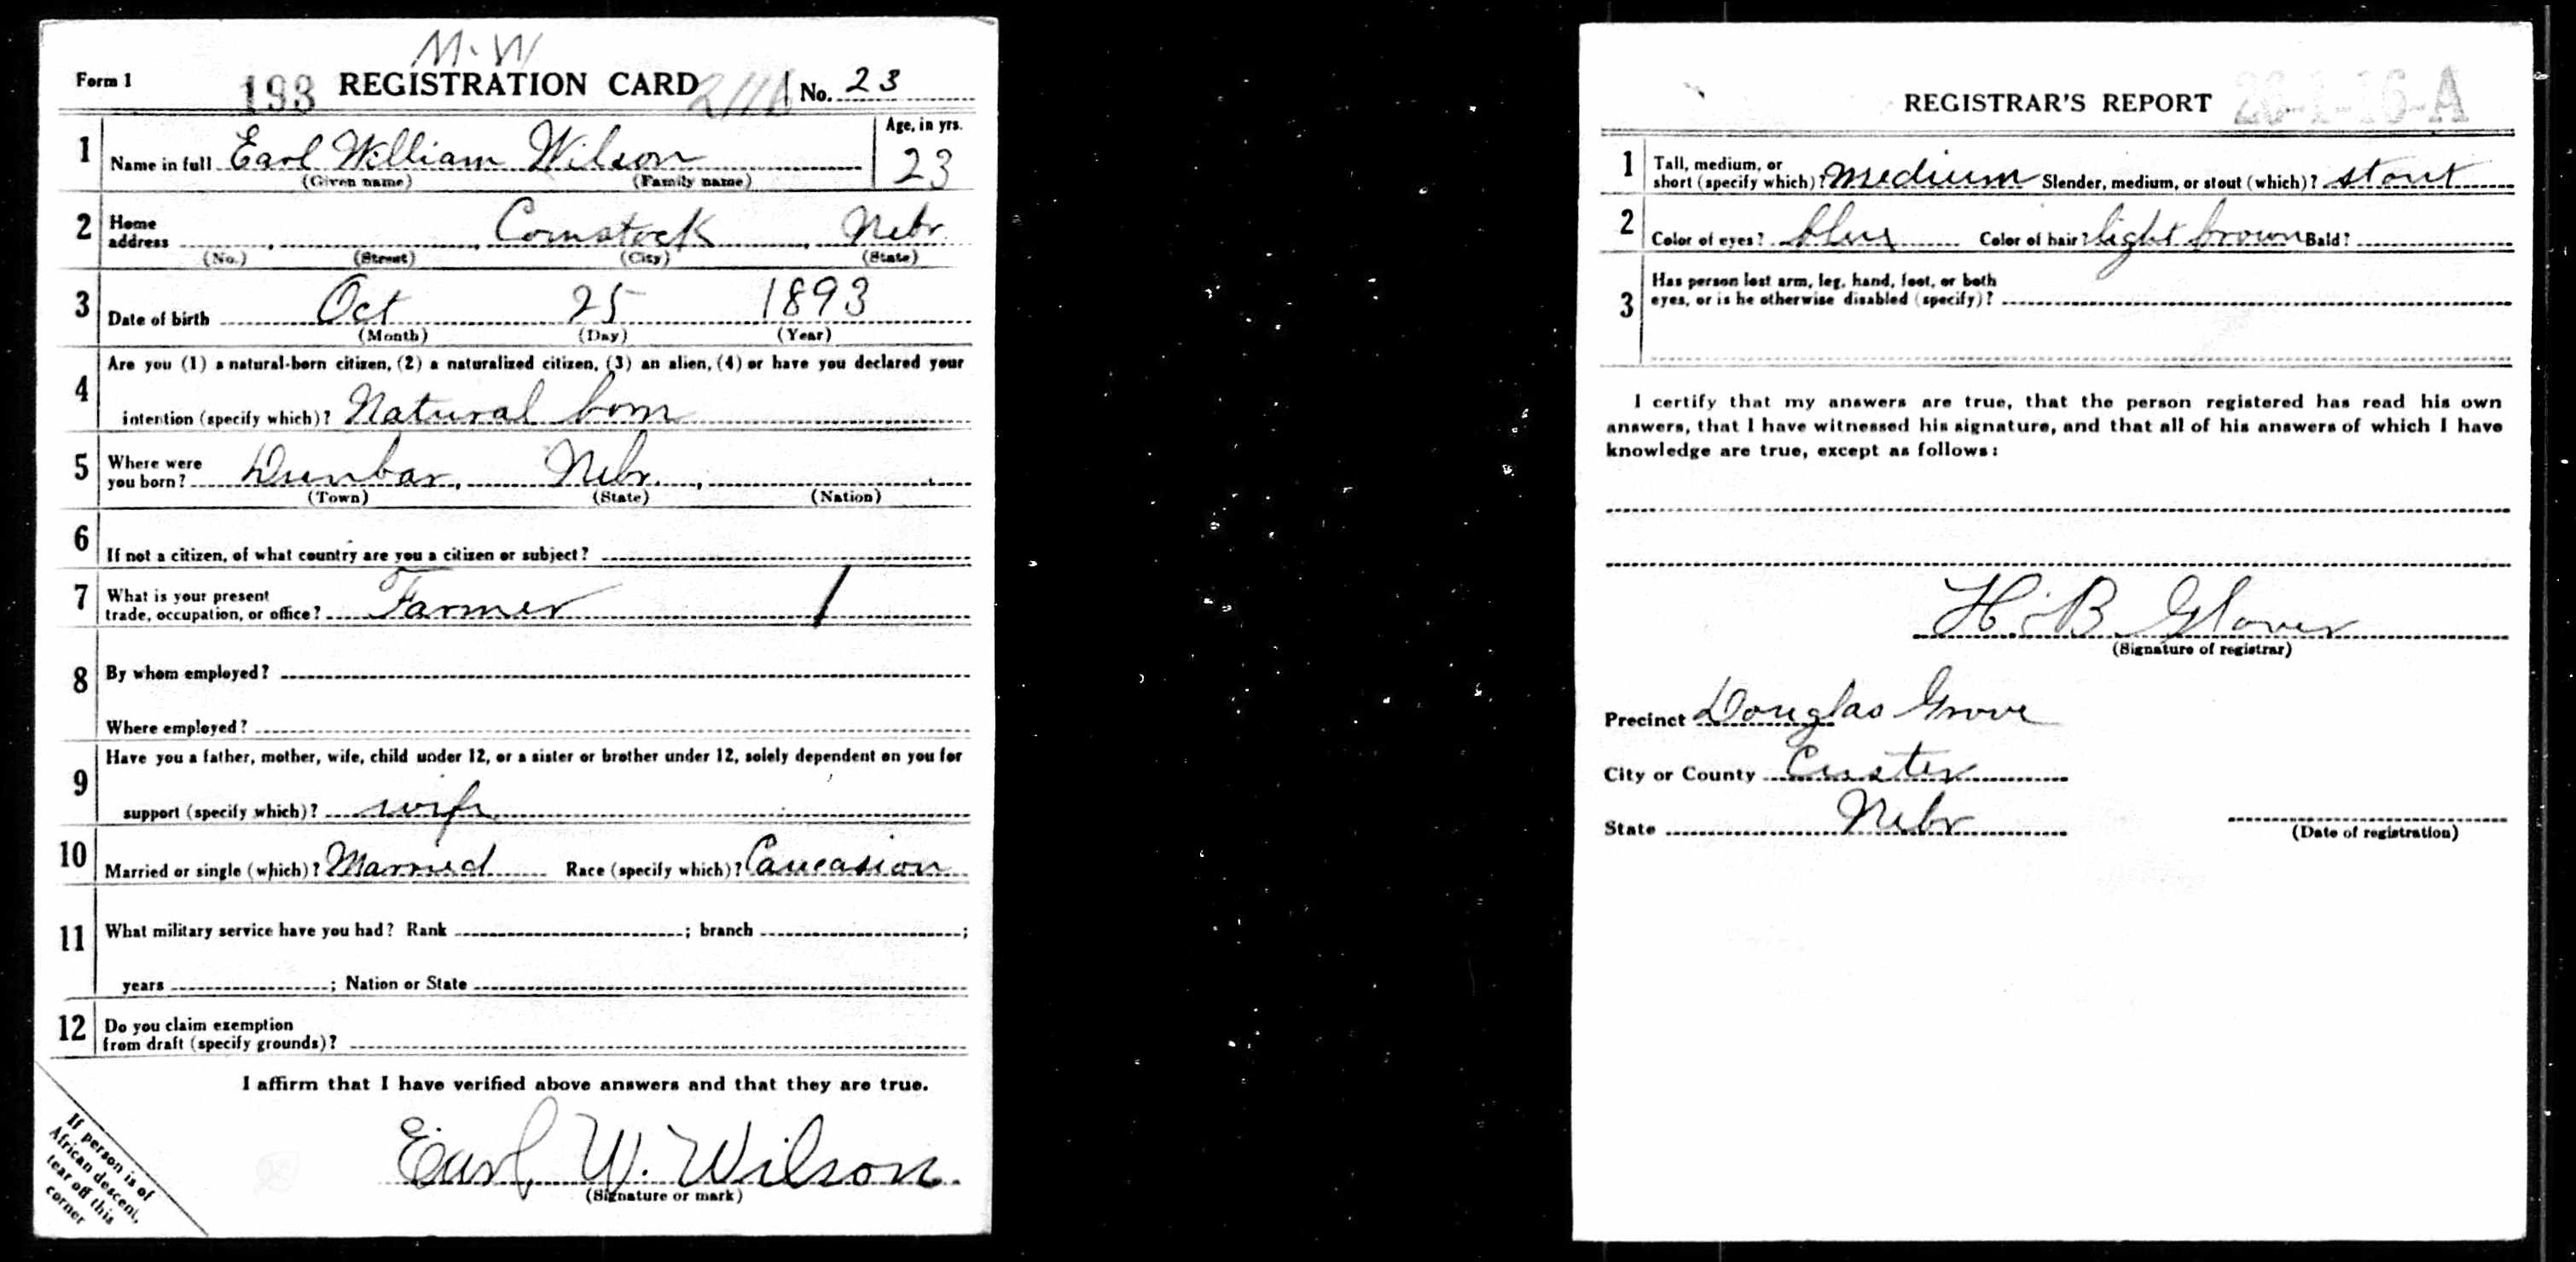 M. W
Form 1 193 REGISTRATION CARD No. 23
1 Name in full Earl William Wilson Age, in yrs. 23
(Given name) (Family name)
2 Home address Comstock, Nebr.
(No.) (Street) (City) (State)
3 Date of birth Oct 25 1893
(Month) (Day) (Year)
4 Are you (1) a natural-born citizen, (2) a naturalized citizen, (3) an alien, (4) or have you declared your
intention (specify which)? Natural born
5 Where were you born? Dunbar, Nebr.,
(Town) (State) (Nation)
6 If not a citizen, of what country are you a citizen or subject?
7 What is your present
trade, occupation, or office? Farmer /
8 By whom employed?
Where employed?
9 Have you a father, mother, wife, child under 12, or a sister or brother under 12, solely dependent on you for
support (specify which)? wife
10 Married or single (which)? Married Race (specify which)? Caucasion
11 What military service have you had? Rank ; branch ;
years ; Nation or State
12 Do you claim exemption
from draft (specify grounds)?
I affirm that I have verified above answers and that they are true.
Earl W. Wilson
(Signature or mark)
If person is of
African descent,
tear off this
corner
REGISTRAR'S REPORT 26-1-16-A
1 Tall, medium, or
short (specify which)? medium Slender, medium, or stout (which)? stout
2 Color of eyes? blue Color of hair? light brown Bald?
3 Has person lost arm, leg, hand, foot, or both
eyes, or is he otherwise disabled (specify)?
I certify that my answers are true, that the person registered has read his own
answers, that I have witnessed his signature, and that all of his answers of which I have
knowledge are true, except as follows:
H. B. Glover
(Signature of registrar)
Precinct Douglas Grove
City or County Custer
State Nebr
(Date of registration)